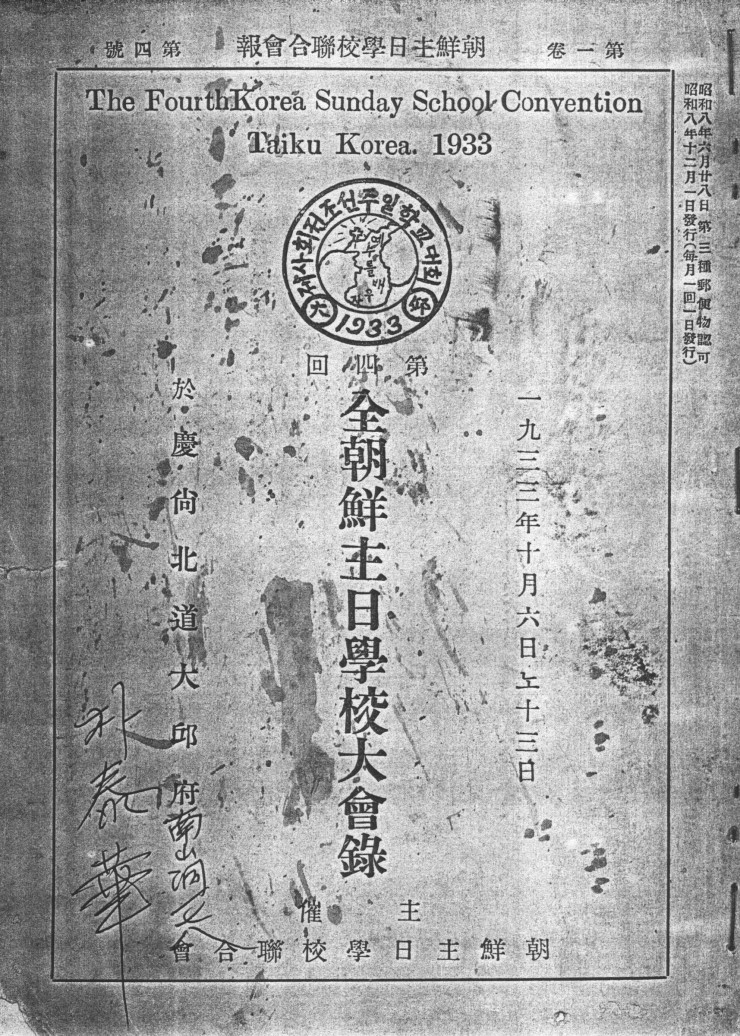 第一卷 朝鮮主日學校聯合會報 第四號
昭和八年六月廿八日 第三種郵便物認可
昭和八年十二月一日發行(每月一回一日發行)
The Fourth Korea Sunday School Convention
Taiku Korea. 1933
사회전조선주일학교대회
예수를배우자
大 1933 邱
第四回
一九三三年十月六日 十三日
全朝鮮主日學校大會錄
於慶尙北道大邱府
南山洞
朴泰華
主催
朝鮮主日學校聯合會